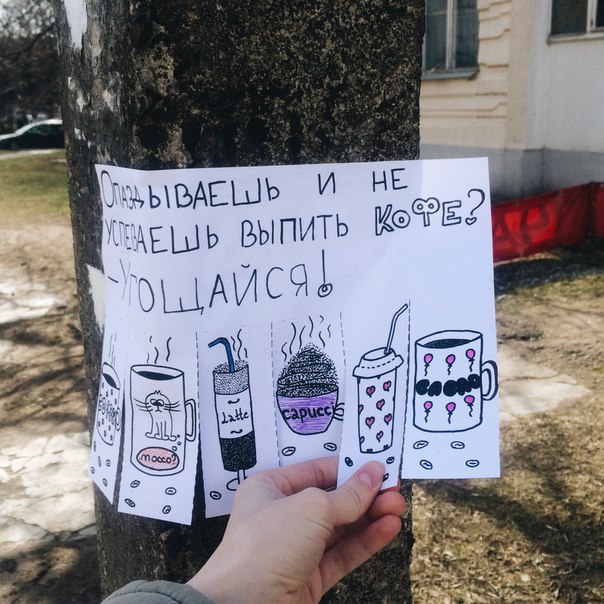 Опаздываешь и не
успеваешь выпить кофе?
– Угощайся!
mocco?
Latte
capucci
cacao